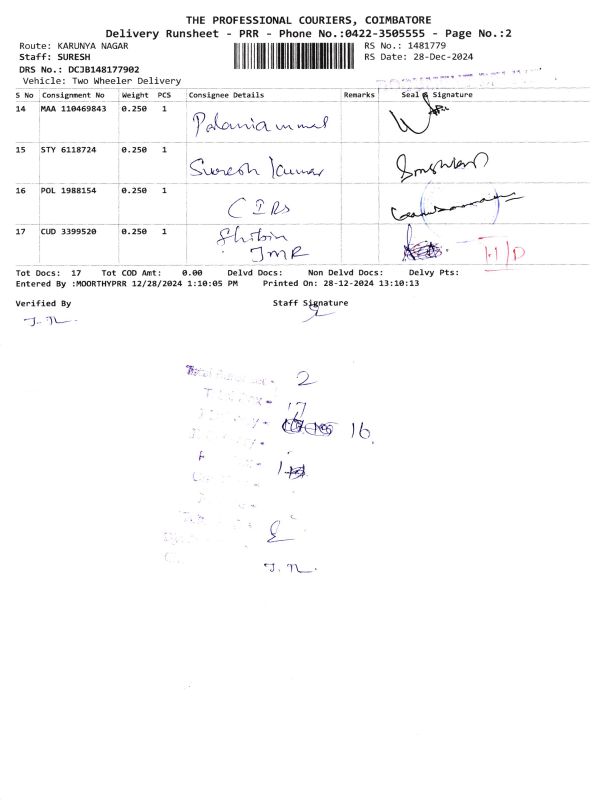 THE PROFESSIONAL COURIERS, COIMBATORE
Delivery Runsheet - PRR - Phone No.:0422-3505555 - Page No.:2
Route: KARUNYA NAGAR RS No.: 1481779
Staff: SURESH RS Date: 28-Dec-2024
DRS No.: DCJB148177902
Vehicle: Two Wheeler Delivery
S No Consignment No Weight PCS Consignee Details Remarks Seal & Signature
14 MAA 110469843 0.250 1 Palaniammal
15 STY 6118724 0.250 1 Suresh kumar
16 POL 1988154 0.250 1 CIRS
17 CUD 3399520 0.250 1 Shibin
JMR H/D
Tot Docs: 17 Tot COD Amt: 0.00 Delvd Docs: Non Delvd Docs: Delvy Pts:
Entered By :MOORTHYPRR 12/28/2024 1:10:05 PM Printed On: 28-12-2024 13:10:13
Verified By Staff Signature
J.n.
2
17
16
1
J.n.